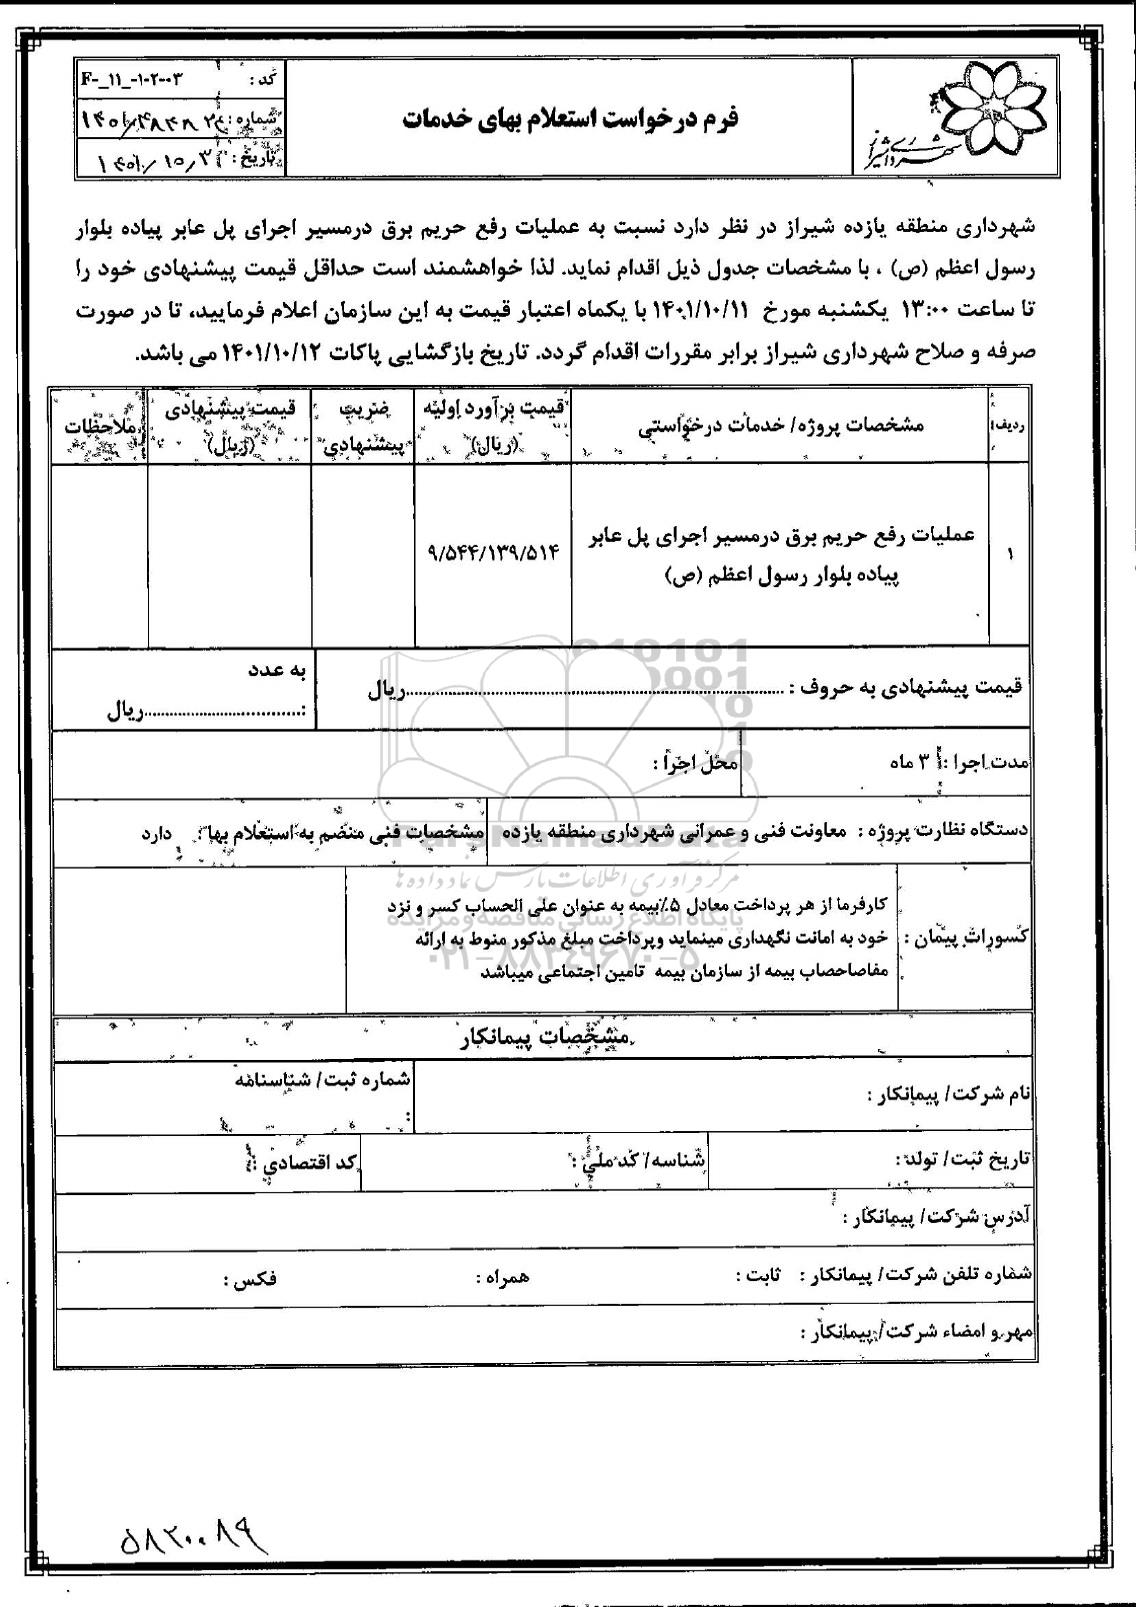 شهرداری شیراز
فرم درخواست استعلام بهای خدمات
کد : F-_۱۱_-۱-۲-۰۳
شماره :
تاریخ :
شهرداری منطقه یازده شیراز در نظر دارد نسبت به عملیات رفع حریم برق درمسیر اجرای پل عابر پیاده بلوار
رسول اعظم (ص) ، با مشخصات جدول ذیل اقدام نماید. لذا خواهشمند است حداقل قیمت پیشنهادی خود را
تا ساعت ۱۳:۰۰ یکشنبه مورخ ۱۴۰۱/۱۰/۱۱ با یکماه اعتبار قیمت به این سازمان اعلام فرمایید، تا در صورت
صرفه و صلاح شهرداری شیراز برابر مقررات اقدام گردد. تاریخ بازگشایی پاکات ۱۴۰۱/۱۰/۱۲ می باشد.
ردیف مشخصات پروژه/ خدمات درخواستی قیمت برآورد اولیه (ریال) ضریب پیشنهادی قیمت پیشنهادی (ریال) ملاحظات
۱ عملیات رفع حریم برق درمسیر اجرای پل عابر ۹/۵۴۴/۱۳۹/۵۱۴
پیاده بلوار رسول اعظم (ص)
قیمت پیشنهادی به حروف : ........................ریال به عدد
:................................ریال
مدت اجرا : ۳ ماه محل اجرا :
دستگاه نظارت پروژه : معاونت فنی و عمرانی شهرداری منطقه یازده مشخصات فنی منضم به استعلام بها : دارد
ParsNamadData
مرکز فرآوری اطلاعات پارس نماد داده ها
پایگاه اطلاع رسانی مناقصه و مزایده
۰۲۱-۸۸۳۴۹۶۷۰-۵
کسورات پیمان : کارفرما از هر پرداخت معادل ۵٪بیمه به عنوان علی الحساب کسر و نزد
خود به امانت نگهداری مینماید وپرداخت مبلغ مذکور منوط به ارائه
مفاصاحصاب بیمه از سازمان بیمه تامین اجتماعی میباشد
مشخصات پیمانکار
نام شرکت/ پیمانکار : شماره ثبت/ شناسنامه :
تاریخ ثبت/ تولد : شناسه/ کد ملی : کد اقتصادی :
آدرس شرکت/ پیمانکار :
شماره تلفن شرکت/ پیمانکار : ثابت : همراه : فکس :
مهر و امضاء شرکت/ پیمانکار :
۵۸۲۰۰۸۹